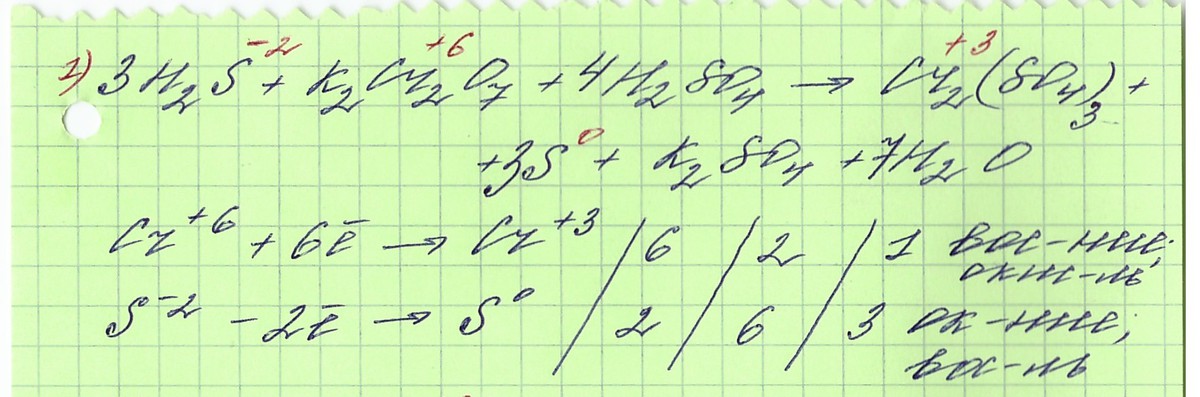 1) 3H₂S⁻² + K₂Cr₂⁺⁶O₇ + 4H₂SO₄ → Cr₂⁺³(SO₄)₃ +
+3S⁰ + K₂SO₄ + 7H₂O
Cr⁺⁶ + 6ē → Cr⁺³ / 6 / 2 / 1 вос-ние;
окис-ль
S⁻² - 2ē → S⁰ / 2 / 6 / 3 ок-ние;
вос-ль